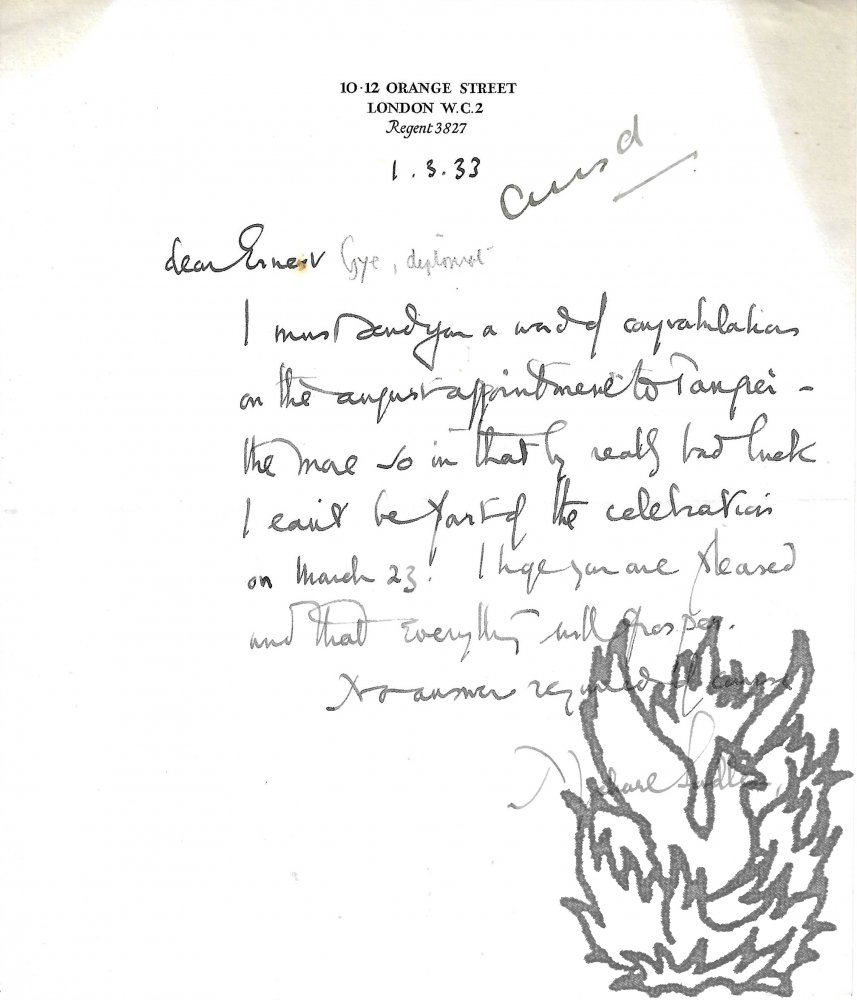 10·12 ORANGE STREET
LONDON W.C.2
Regent 3827
1.3.33
dear Ernest Gye, diplomat
I must send you a word of congratulations
on the august appointment to Tangier –
the more so in that by really bad luck
I can't be part of the celebration
on March 23! I hope you are pleased
and that everything will prosper.
No answer required of course
Michael Sadleir